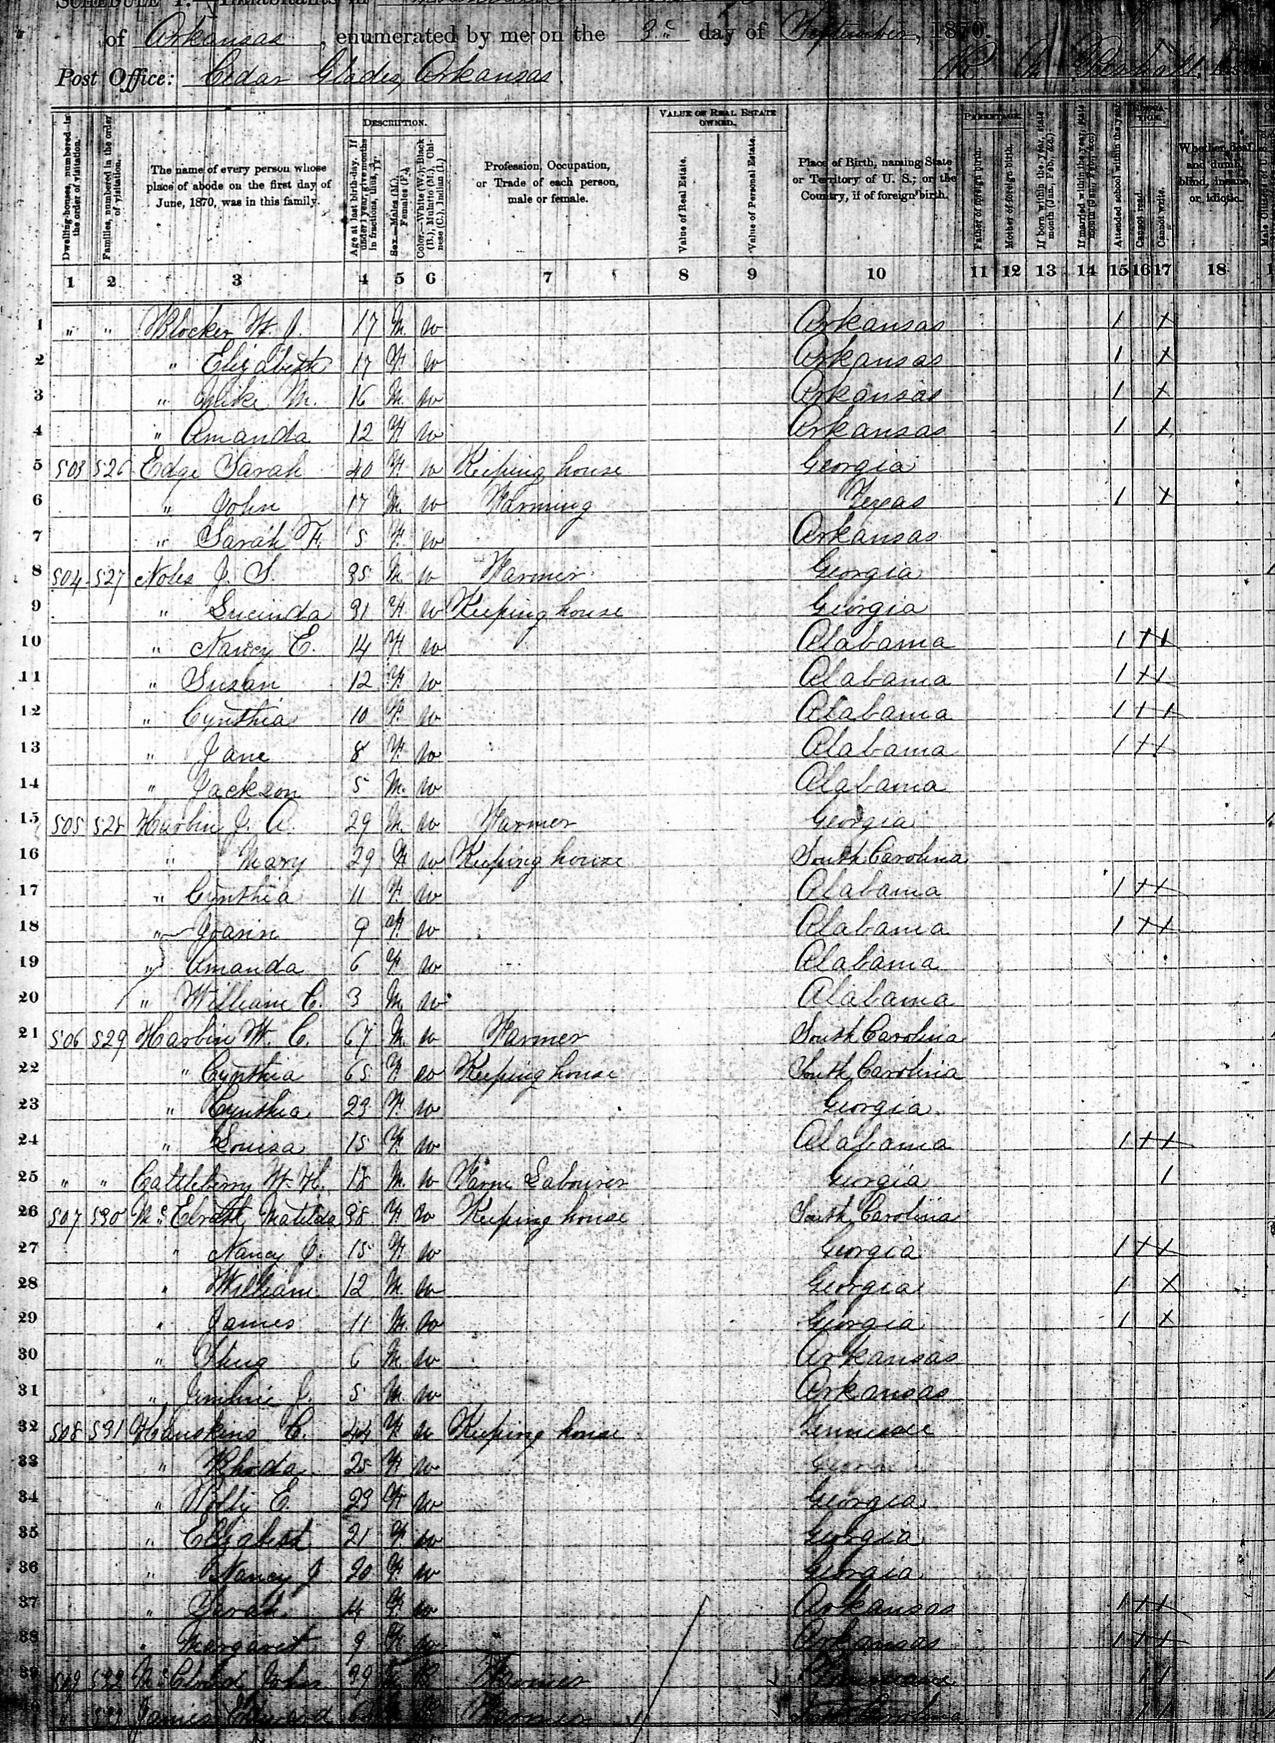 SCHEDULE 1.—Inhabitants in
of Arkansas, enumerated by me on the 3d day of September, 1870.
Post Office: Cedar Glades, Arkansas.
Dwelling-houses, numbered in the order of visitation.
Families, numbered in the order of visitation.
The name of every person whose place of abode on the first day of June, 1870, was in this family.
DESCRIPTION.
Age at last birth-day. If under 1 year, give months in fractions, thus,
Sex.—Males (M.), Females (F.)
Color.—White (W.), Black (B.), Mulatto (M.), Chinese (C.), Indian (I.)
Profession, Occupation, or Trade of each person, male or female.
VALUE OF REAL ESTATE OWNED.
Value of Real Estate.
Value of Personal Estate.
Place of Birth, naming State or Territory of U. S.; or the Country, if of foreign birth.
PARENTAGE.
Father of foreign birth.
Mother of foreign birth.
If born within the year, state month (Jan., Feb., &c.)
If married within the year, state month (Jan., Feb., &c.)
Attended school within the year.
EDUCATION.
Cannot read.
Cannot write.
Whether deaf and dumb, blind, insane, or idiotic.
1 2 3 4 5 6 7 8 9 10 11 12 13 14 15 16 17 18
1 " " Blocker W. J. 17 M. W Arkansas 1 X
2 " Elizabeth 17 F. W Arkansas 1 X
3 " Mike M. 16 M. W Arkansas 1 X
4 " Amanda 12 F. W Arkansas 1 X
5 503 526 Edge Sarah 40 F. W Keeping house Georgia
6 " John 17 M. W Farming Texas 1 X
7 " Sarah F. 5 F. W Arkansas
8 504 527 Noles J. S. 35 M. W Farmer Georgia
9 " Lucinda 31 F. W Keeping house Georgia
10 " Nancy E. 14 F. W Alabama 1 X X
11 " Susan 12 F. W Alabama 1 X X
12 " Cynthia 10 F. W Alabama 1 X X
13 " Jane 8 F. W Alabama 1 X X
14 " Jackson 5 M. W Alabama
15 505 528 Harbin J. A. 29 M. W Farmer Georgia
16 " Mary 29 F. W Keeping house South Carolina
17 " Cynthia 11 F. W Alabama 1 X X
18 " Joann 9 F. W Alabama 1 X X
19 " Amanda 6 F. W Alabama
20 " William C. 3 M. W Alabama
21 506 529 Harbin W. C. 67 M. W Farmer South Carolina
22 " Cynthia 65 F. W Keeping house South Carolina
23 " Cynthia 23 F. W Georgia
24 " Louisa 15 F. W Alabama 1 X X
25 " " Cattleberry W. H. 18 M. W Farm Labourer Georgia 1
26 507 530 McElrath, Matilda 38 F. W Keeping house South Carolina
27 " Nancy J. 15 F. W Georgia 1 X X
28 " William 12 M. W Georgia 1 X
29 " James 11 M. W Georgia 1 X
30 " 6 M. W Arkansas
31 " J. 5 M. W Arkansas
32 508 531 C. 44 F. W Keeping house Tennessee
33 " Rhoda 25 F. W Georgia
34 " E. 23 F. W Georgia
35 " Elizabeth 21 F. W Georgia
36 " Nancy J 20 F. W Georgia
37 " Sarah F. W Arkansas 1 X X
38 " Margaret 9 F. W Arkansas 1 X X
39 509 532 John M. Farmer 1 1
533 James Farmer South Carolina 1 1